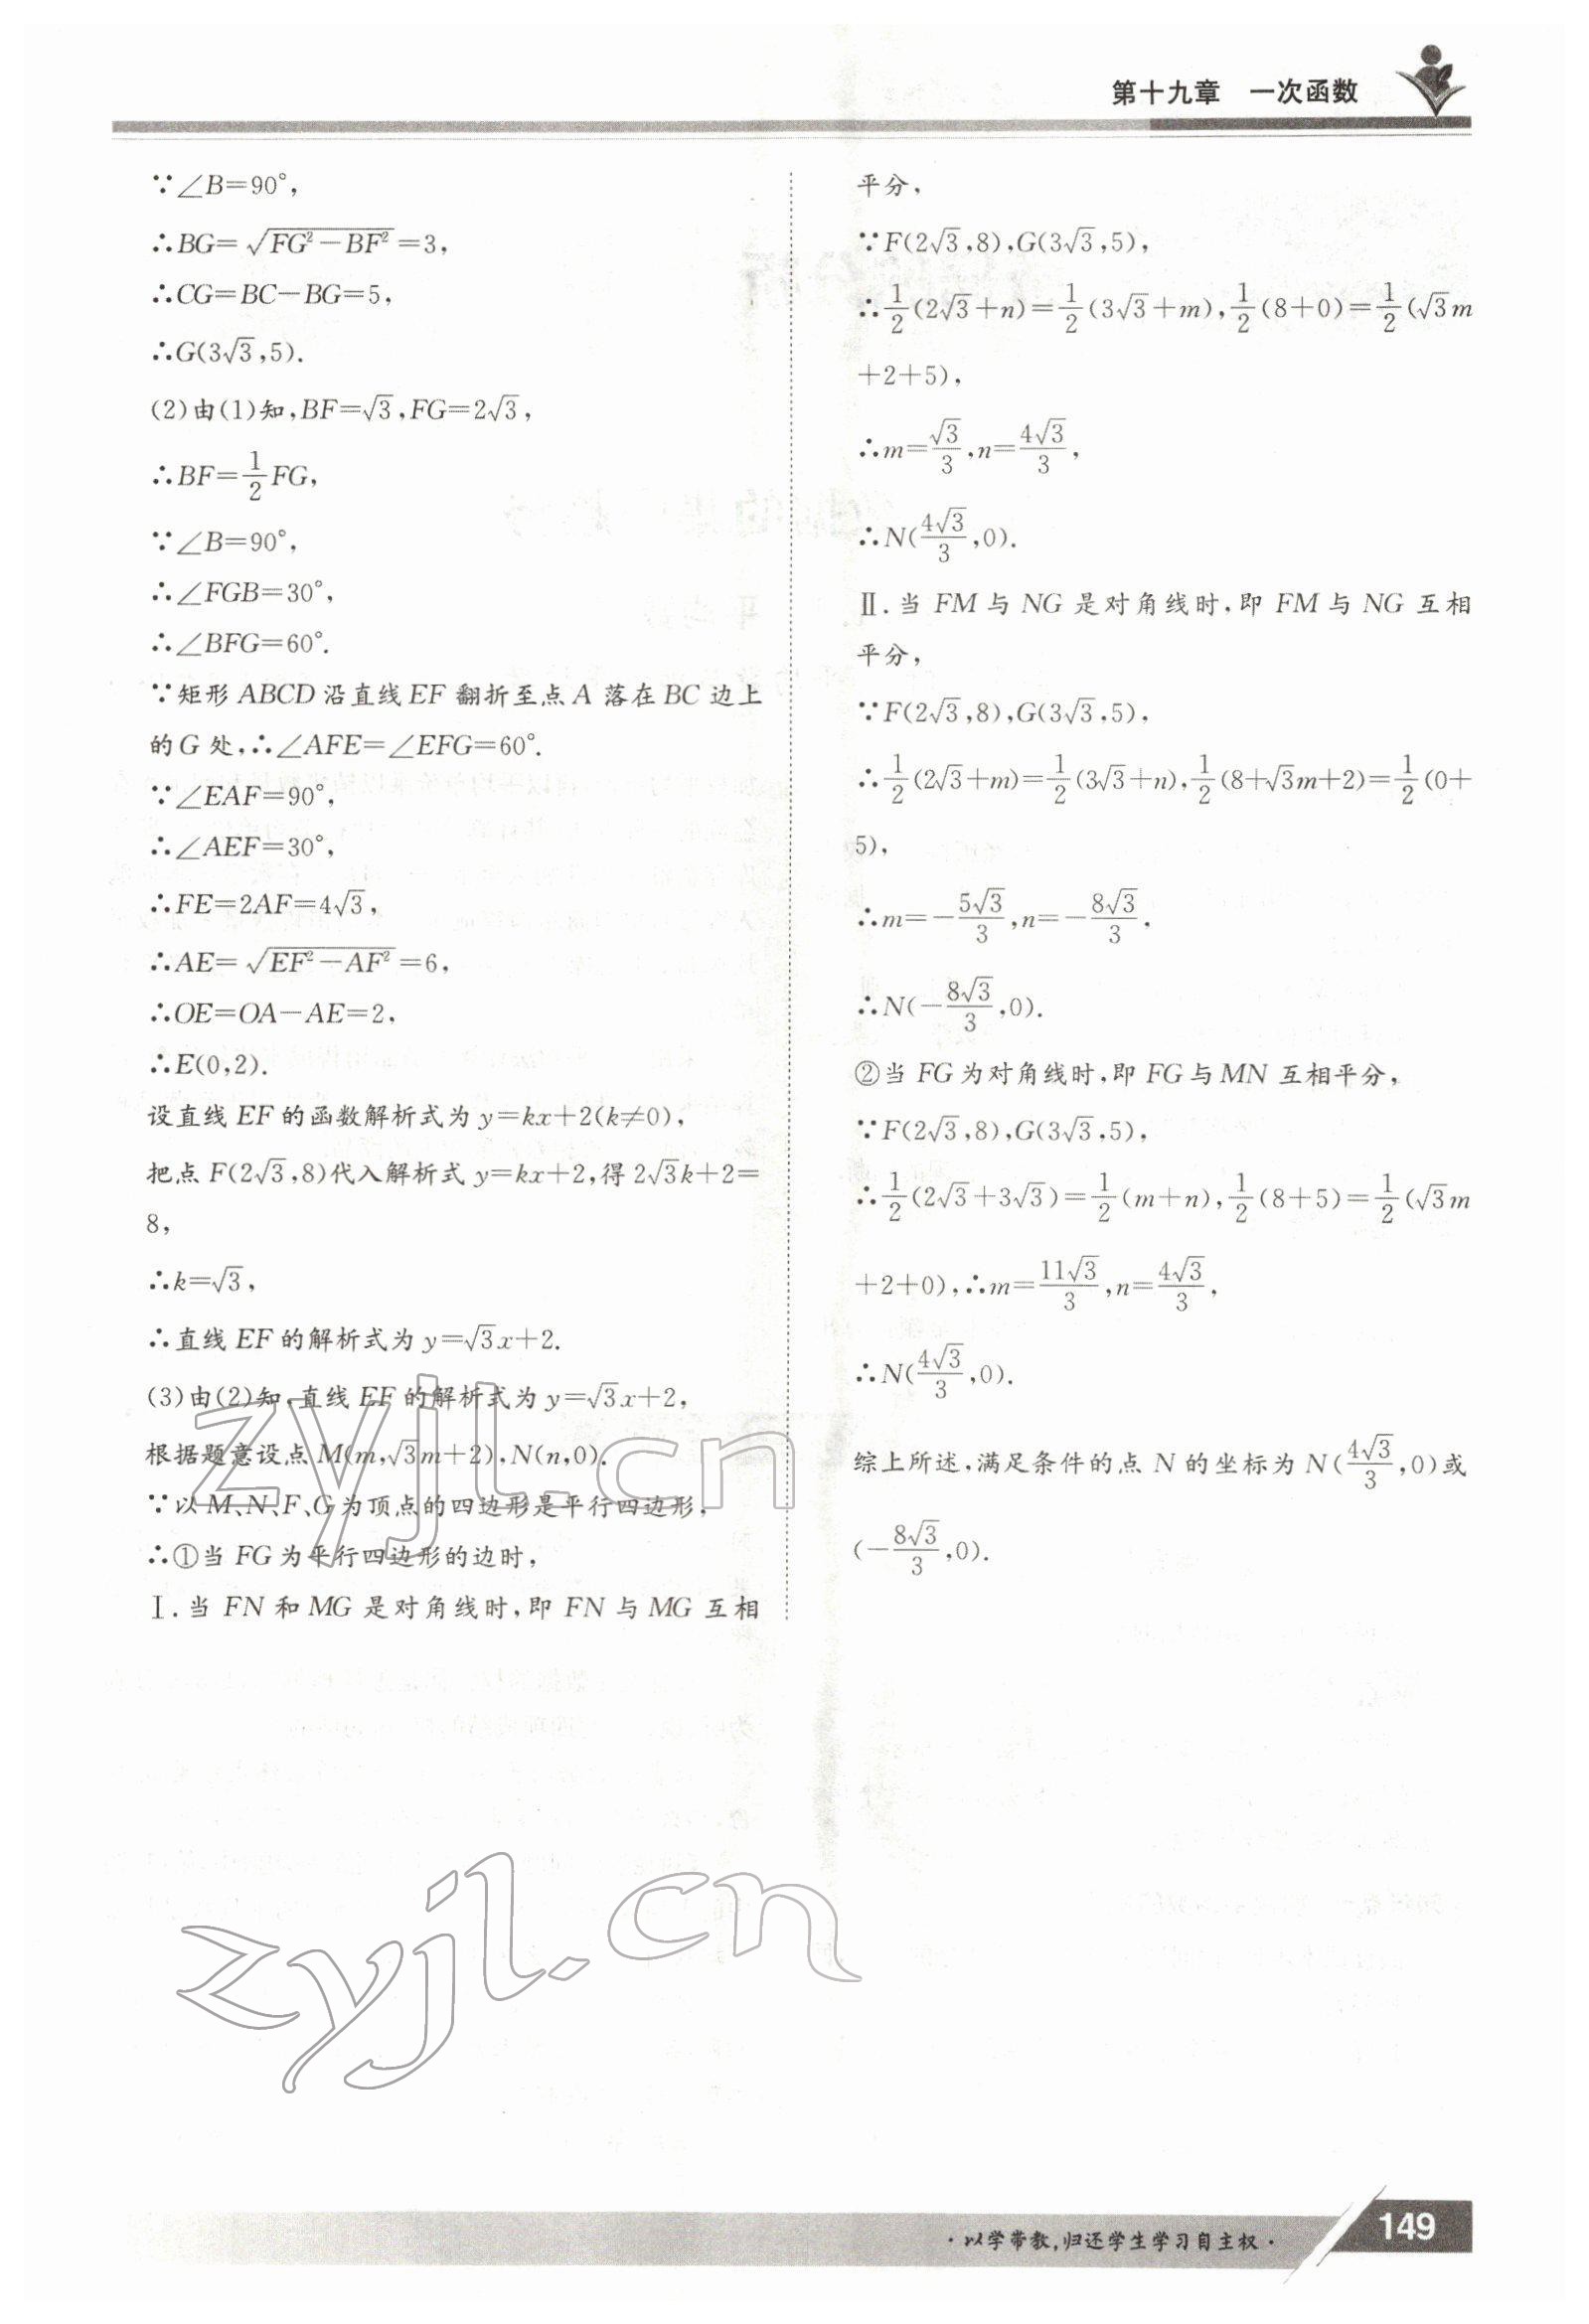 第十九章 一次函数
∵∠B=90°,
∴BG=√(FG²-BF²)=3,
∴CG=BC-BG=5,
∴G(3√3,5).
(2)由(1)知,BF=√3,FG=2√3,
∴BF=1/2 FG,
∵∠B=90°,
∴∠FGB=30°,
∴∠BFG=60°.
∵矩形 ABCD 沿直线 EF 翻折至点 A 落在 BC 边上
的 G 处,∴∠AFE=∠EFG=60°.
∵∠EAF=90°,
∴∠AEF=30°,
∴FE=2AF=4√3,
∴AE=√(EF²-AF²)=6,
∴OE=OA-AE=2,
∴E(0,2).
设直线 EF 的函数解析式为 y=kx+2(k≠0),
把点 F(2√3,8)代入解析式 y=kx+2,得 2√3k+2=
8,
∴k=√3,
∴直线 EF 的解析式为 y=√3x+2.
(3)由(2)知,直线 EF 的解析式为 y=√3x+2,
根据题意设点 M(m,√3m+2),N(n,0).
∵以 M、N、F、G 为顶点的四边形是平行四边形,
∴①当 FG 为平行四边形的边时,
Ⅰ.当 FN 和 MG 是对角线时,即 FN 与 MG 互相
平分,
∵F(2√3,8),G(3√3,5),
∴1/2(2√3+n)=1/2(3√3+m),1/2(8+0)=1/2(√3m
+2+5),
∴m=√3/3,n=4√3/3,
∴N(4√3/3,0).
Ⅱ.当 FM 与 NG 是对角线时,即 FM 与 NG 互相
平分,
∵F(2√3,8),G(3√3,5),
∴1/2(2√3+m)=1/2(3√3+n),1/2(8+√3m+2)=1/2(0+
5),
∴m=-5√3/3,n=-8√3/3.
∴N(-8√3/3,0).
②当 FG 为对角线时,即 FG 与 MN 互相平分,
∵F(2√3,8),G(3√3,5),
∴1/2(2√3+3√3)=1/2(m+n),1/2(8+5)=1/2(√3m
+2+0),∴m=11√3/3,n=4√3/3,
∴N(4√3/3,0).
综上所述,满足条件的点 N 的坐标为 N(4√3/3,0)或
(-8√3/3,0).
zyjl.cn
zyjl.cn
·以学带教,归还学生学习自主权·
149